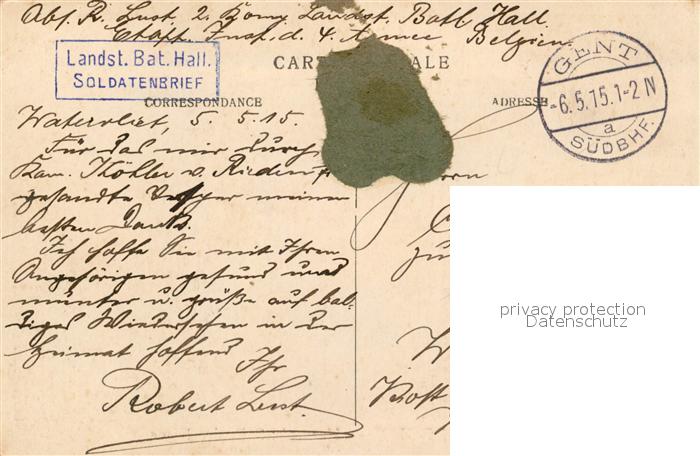 Abs. R. Lust, 2. Komp. Landst. Batl. Hall.
Etapp. Insp. d. 4. Armee Belgien.
Landst. Bat. Hall.
SOLDATENBRIEF
CARTE POSTALE
GENT
-6.5.15.1-2 N
a
SÜDBHF.
CORRESPONDANCE
ADRESSE
Watervliet, 5. 5. 15.
Für das mir durch
Kam. Köhler v. Rieden
gesandte Vesper meinen
besten Dank.
Ich hoffe Sie mit Ihren
Angehörigen gesund und
munter u. grüße auf bal-
diges Wiedersehen in der
Heimat hoffend Ihr
Robert Lust
privacy protection
Datenschutz